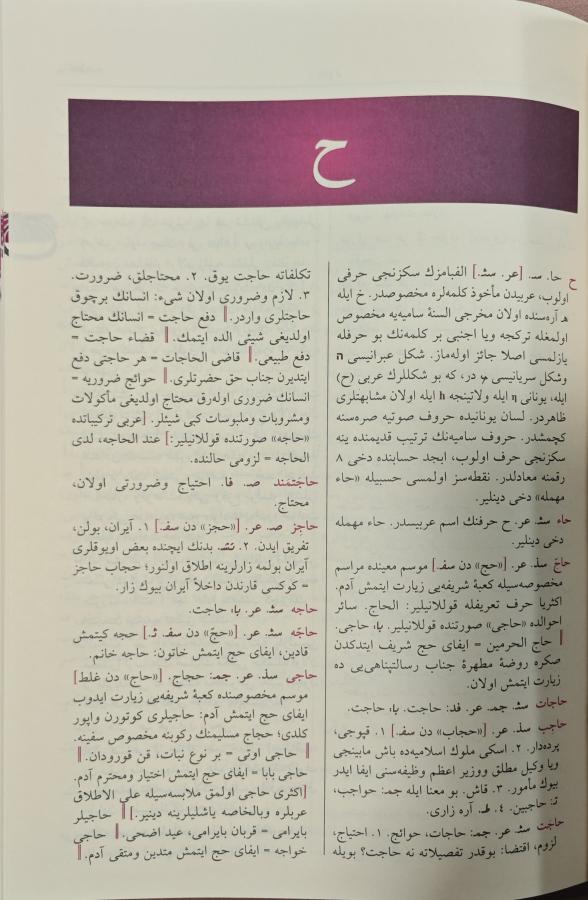 ح
ح حا. سـ. [عر. سـثـ.] الفبامزك سكزنجى حرفى
اولوب، عربيدن مأخوذ كلمه‌لره مخصوصدر. خ ايله
هـ آره‌سنده اولان مخرجى السنۀ ساميه‌يه مخصوص
اولمغله تركجه ويا اجنبى بر كلمه‌نك بو حرفله
يازلمسى اصلا جائز اوله‌ماز. شكل عبرانيسى ח
وشكل سريانيسى در، كه بو شكللرك عربى (ح)
ايله، يونانى η ايله ولاتينجه h ايله اولان مشابهتلرى
ظاهردر. لسان يونانيده حروف صوتيه صره‌سنه
كچمشدر. حروف ساميه‌نك ترتيب قديمنده ينه
سكزنجى حرف اولوب، ابجد حسابنده دخى ٨
رقمنه معادلدر. نقطه‌سز اولمسى حسبيله «حاء
مهمله» دخى دينلير.
حاء سثـ. عر. ح حرفنك اسم عربيسدر. حاء مهمله
دخى دينلير.
حاجّ سذـ. عر. [«حج» دن سفـ.] موسم معينده مراسم
مخصوصه‌سيله كعبۀ شريفه‌يى زيارت ايتمش آدم.
اكثريا حرف تعريفله قوللانيلير: الحاج. سائر
احوالده «حاجى» صورتنده قوللانيلير. با، حاجى.
‖ حاج الحرمين = ايفاى حج شريف ايتدكدن
صكره روضۀ مطهرۀ جناب رسالتپناهى‌يى ده
زيارت ايتمش اولان.
حاجات سثـ. جمـ. عر. فد: حاجت. با، حاجت.
حاجب سذـ. عر. [«حجاب» دن سفـ.] ١. قپوجى،
پرده‌دار. ٢. اسكى ملوك اسلاميه‌ده باش مابينجى
ويا وكيل مطلق ووزير اعظم وظيفه‌سنى ايفا ايدر
بيوك مأمور. ٣. قاش. بو معنا ايله جمـ: حواجب،
تـ: حاجبين. ٤. طـ. آره زارى.
حاجت سثـ. عر. جمـ: حاجات، حوائج. ١. احتياج،
لزوم، اقتضا: بوقدر تفصيلاته نه حاجت؟ بويله
تكلفاته حاجت يوق. ٢. محتاجلق، ضرورت.
٣. لازم وضرورى اولان شىء: انسانك برچوق
حاجتلرى واردر. ‖ دفع حاجت = انسانك محتاج
اولديغى شيئى الده ايتمك. ‖ قضاء حاجت =
دفع طبيعى. ‖ قاضى الحاجات = هر حاجتى دفع
ايتديرن جناب حق حضرتلرى. ‖ حوائج ضروريه =
انسانك ضرورى اوله‌رق محتاج اولديغى مأكولات
ومشروبات وملبوسات كبى شيئلر. [عربى تركيباتده
«حاجه» صورتنده قوللانيلير:] عند الحاجه، لدى
الحاجه = لزومى حالنده.
حاجتمند صـ. فا. احتياج وضرورتى اولان،
محتاج.
حاجز صـ. عر. [«حجز» دن سفـ.] ١. آيران، بولن،
تفريق ايدن. ٢. تشـ. بدنك ايچنده بعض اويوقلرى
آيران بولمه زارلرينه اطلاق اولنور؛ حجاب حاجز
= كوكسى قارندن داخلاً آيران بيوك زار.
حاجه سثـ. عر. با، حاجت.
حاجّه سثـ. عر. [«حجّ» دن سفـ. ثـ.] حجه كيتمش
قادين، ايفاى حج ايتمش خاتون: حاجه خانم.
حاجى سذـ. عر. جمـ: حجاج. [«حاج» دن غلط]
موسم مخصوصنده كعبۀ شريفه‌يى زيارت ايدوب
ايفاى حج ايتمش آدم: حاجيلرى كوتورن واپور
كلدى؛ حجاج مسلمينك ركوبنه مخصوص سفينه.
‖ حاجى اوتى = بر نوع نبات، قن قورودان. ‖
حاجى بابا = ايفاى حج ايتمش اختيار ومحترم آدم.
[اكثرى حاجى اولمق ملابسه‌سيله على الاطلاق
عربلره وبالخاصه ياشليلرينه دينير.] ‖ حاجيلر
بايرامى = قربان بايرامى، عيد اضحى. ‖ حاجى
خواجه = ايفاى حج ايتمش متدين ومتقى آدم. ‖